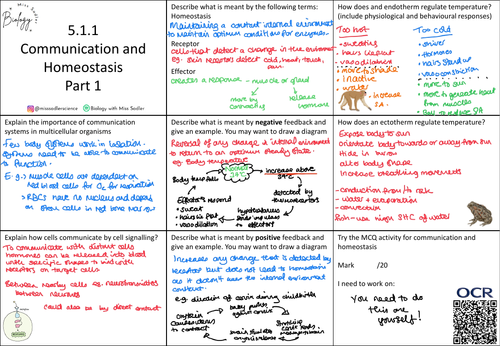 Miss Sedler
Biology
5.1.1
Communication and
Homeostasis
Part 1
@missedlerscience
Biology with Miss Sedler
Describe what is meant by the following terms:
Homeostasis
Maintaining a constant internal environment
to maintain optimum conditions for enzymes.
Receptor
cells that detect a change in the environment
eg. skin receptors detect cold, heat, touch,
pain
Effector
creates a response - muscle or gland
move by
contracting
release
hormone
How does and endotherm regulate temperature?
(include physiological and behavioural responses)
Too hot
- sweating
- hairs lay flat
- vasodilation
- move to shade
- inactive
- water
- increase
SA
Too cold
- shiver
- hormones
- hairs stand up
- vasoconstriction
- move to sun
- move to generate heat
from muscles
- Ball to reduce SA
Explain the importance of communication
systems in multicellular organisms
Few body systems work in isolation.
Systems need to be able to communicate
to function.
E.g.; muscle cells are dependent on
red blood cells for O2 for respiration
> RBCs have no nucleus and depend
on stem cells in red bone marrow
Describe what is meant by negative feedback and
give an example. You may want to draw a diagram
Reversal of any change in internal environment
to return to an optimum steady state.
eg. Body temperature
Body temp falls
Normal
increase above
detected by
thermoreceptors
hypothalamus
sends impulses
to effectors
Effectors respond
- sweat
- hairs lay flat
- vasodilation
How does an ectotherm regulate temperature?
Expose body to sun
orientate body towards or away from sun
Hide in burrow
alter body shape
Increase breathing movements
- conduction from hot rock
- water & evaporation
- convection
Explain how cells communicate by cell signalling?
To communicate with distant cells
hormones can be released into blood
with specific shapes to bind with
receptors on target cells
Between nearby cells eg. neurotransmitters
between neurones
could also be by direct contact
Describe what is meant by positive feedback and
give an example. You may want to draw a diagram
Increases any change that is detected by
receptor but does not lead to homeostasis
as it doesn't keep the internal environment
constant.
eg. dilation of cervix during childbirth
baby pushes
against cervix
stretching
cervix sends
message to brain
brain stimulates
oxytocin release
oxytocin
causes uterus
to contract
Try the MCQ activity for communication and
homeostasis
Mark /20
I need to work on:
you need to do
this one
yourself!
OCR